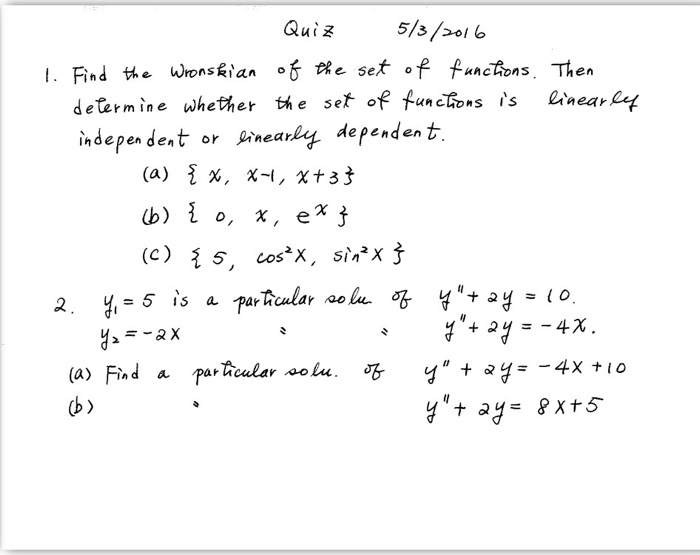 Quiz 5/3/2016
1. Find the Wronskian of the set of functions. Then
determine whether the set of functions is linearly
independent or linearly dependent.
(a) { x, x-1, x+3 }
(b) { 0, x, eˣ }
(c) { 5, cos²x, sin²x }
2. y₁ = 5 is a particular solu of y" + 2y = 10.
y₂ = -2x " " y" + 2y = -4x.
(a) Find a particular solu. of y" + 2y = -4x + 10
(b) " y" + 2y = 8x+5